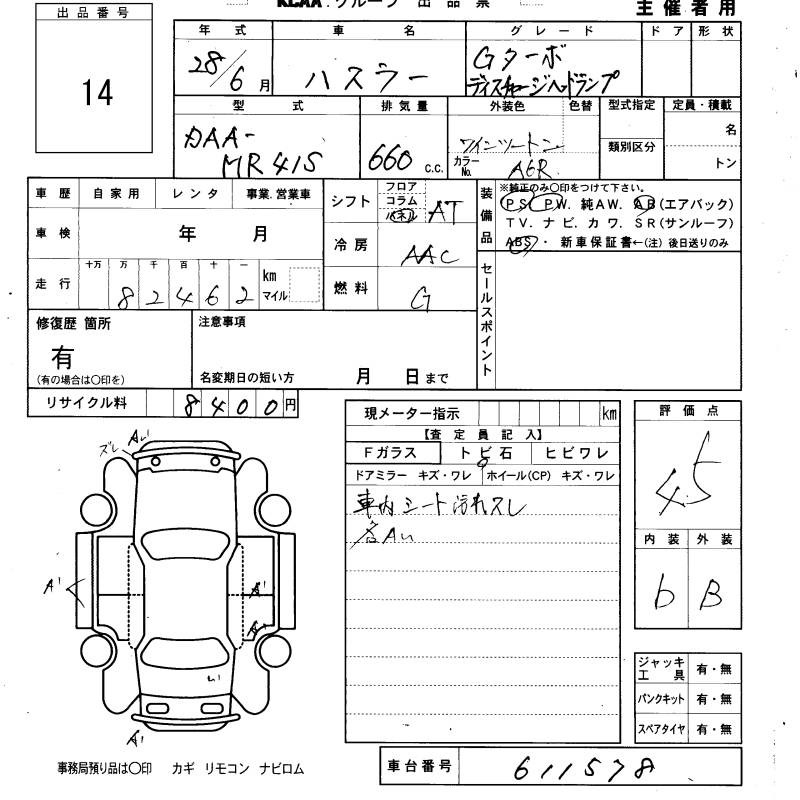 KCAA.グループ 出品票
主催者用
出品番号
14
年式 車名 グレード ドア 形状
28/6月 ハスラー Gターボ
ディスチャージヘッドランプ
型式 排気量 外装色 色替 型式指定 定員・積載
DAA- 名
類別区分
MR41S 660 c.c. ワインツートン
カラーNo. A6R トン
車歴 自家用 レンタ 事業.営業車
シフト フロア コラム パネル AT
装備品 ※純正のみ○印をつけて下さい。
PS. PW. 純AW. AB(エアバック)
TV. ナビ. カワ. SR(サンルーフ)
ABS・ 新車保証書←(注) 後日送りのみ
車検 年 月
冷房 AAC
走行 十万 万 千 百 十 一
82462 km マイル
燃料 G
セールスポイント
修復歴 箇所 注意事項
有
(有の場合は○印を) 名変期日の短い方 月 日まで
リサイクル料 8400円
現メーター指示 km
評価点
【査定員記入】
Fガラス トビ石 ヒビワレ
ドアミラー キズ・ワレ ホイール(CP) キズ・ワレ
車内シート汚れスレ
各Aい
4.5
内装 外装
b B
ズレ Aい
A'
A'
い
A'
ジャッキ工具 有・無
パンクキット 有・無
スペアタイヤ 有・無
事務局預り品は○印 カギ リモコン ナビロム
車台番号 611578